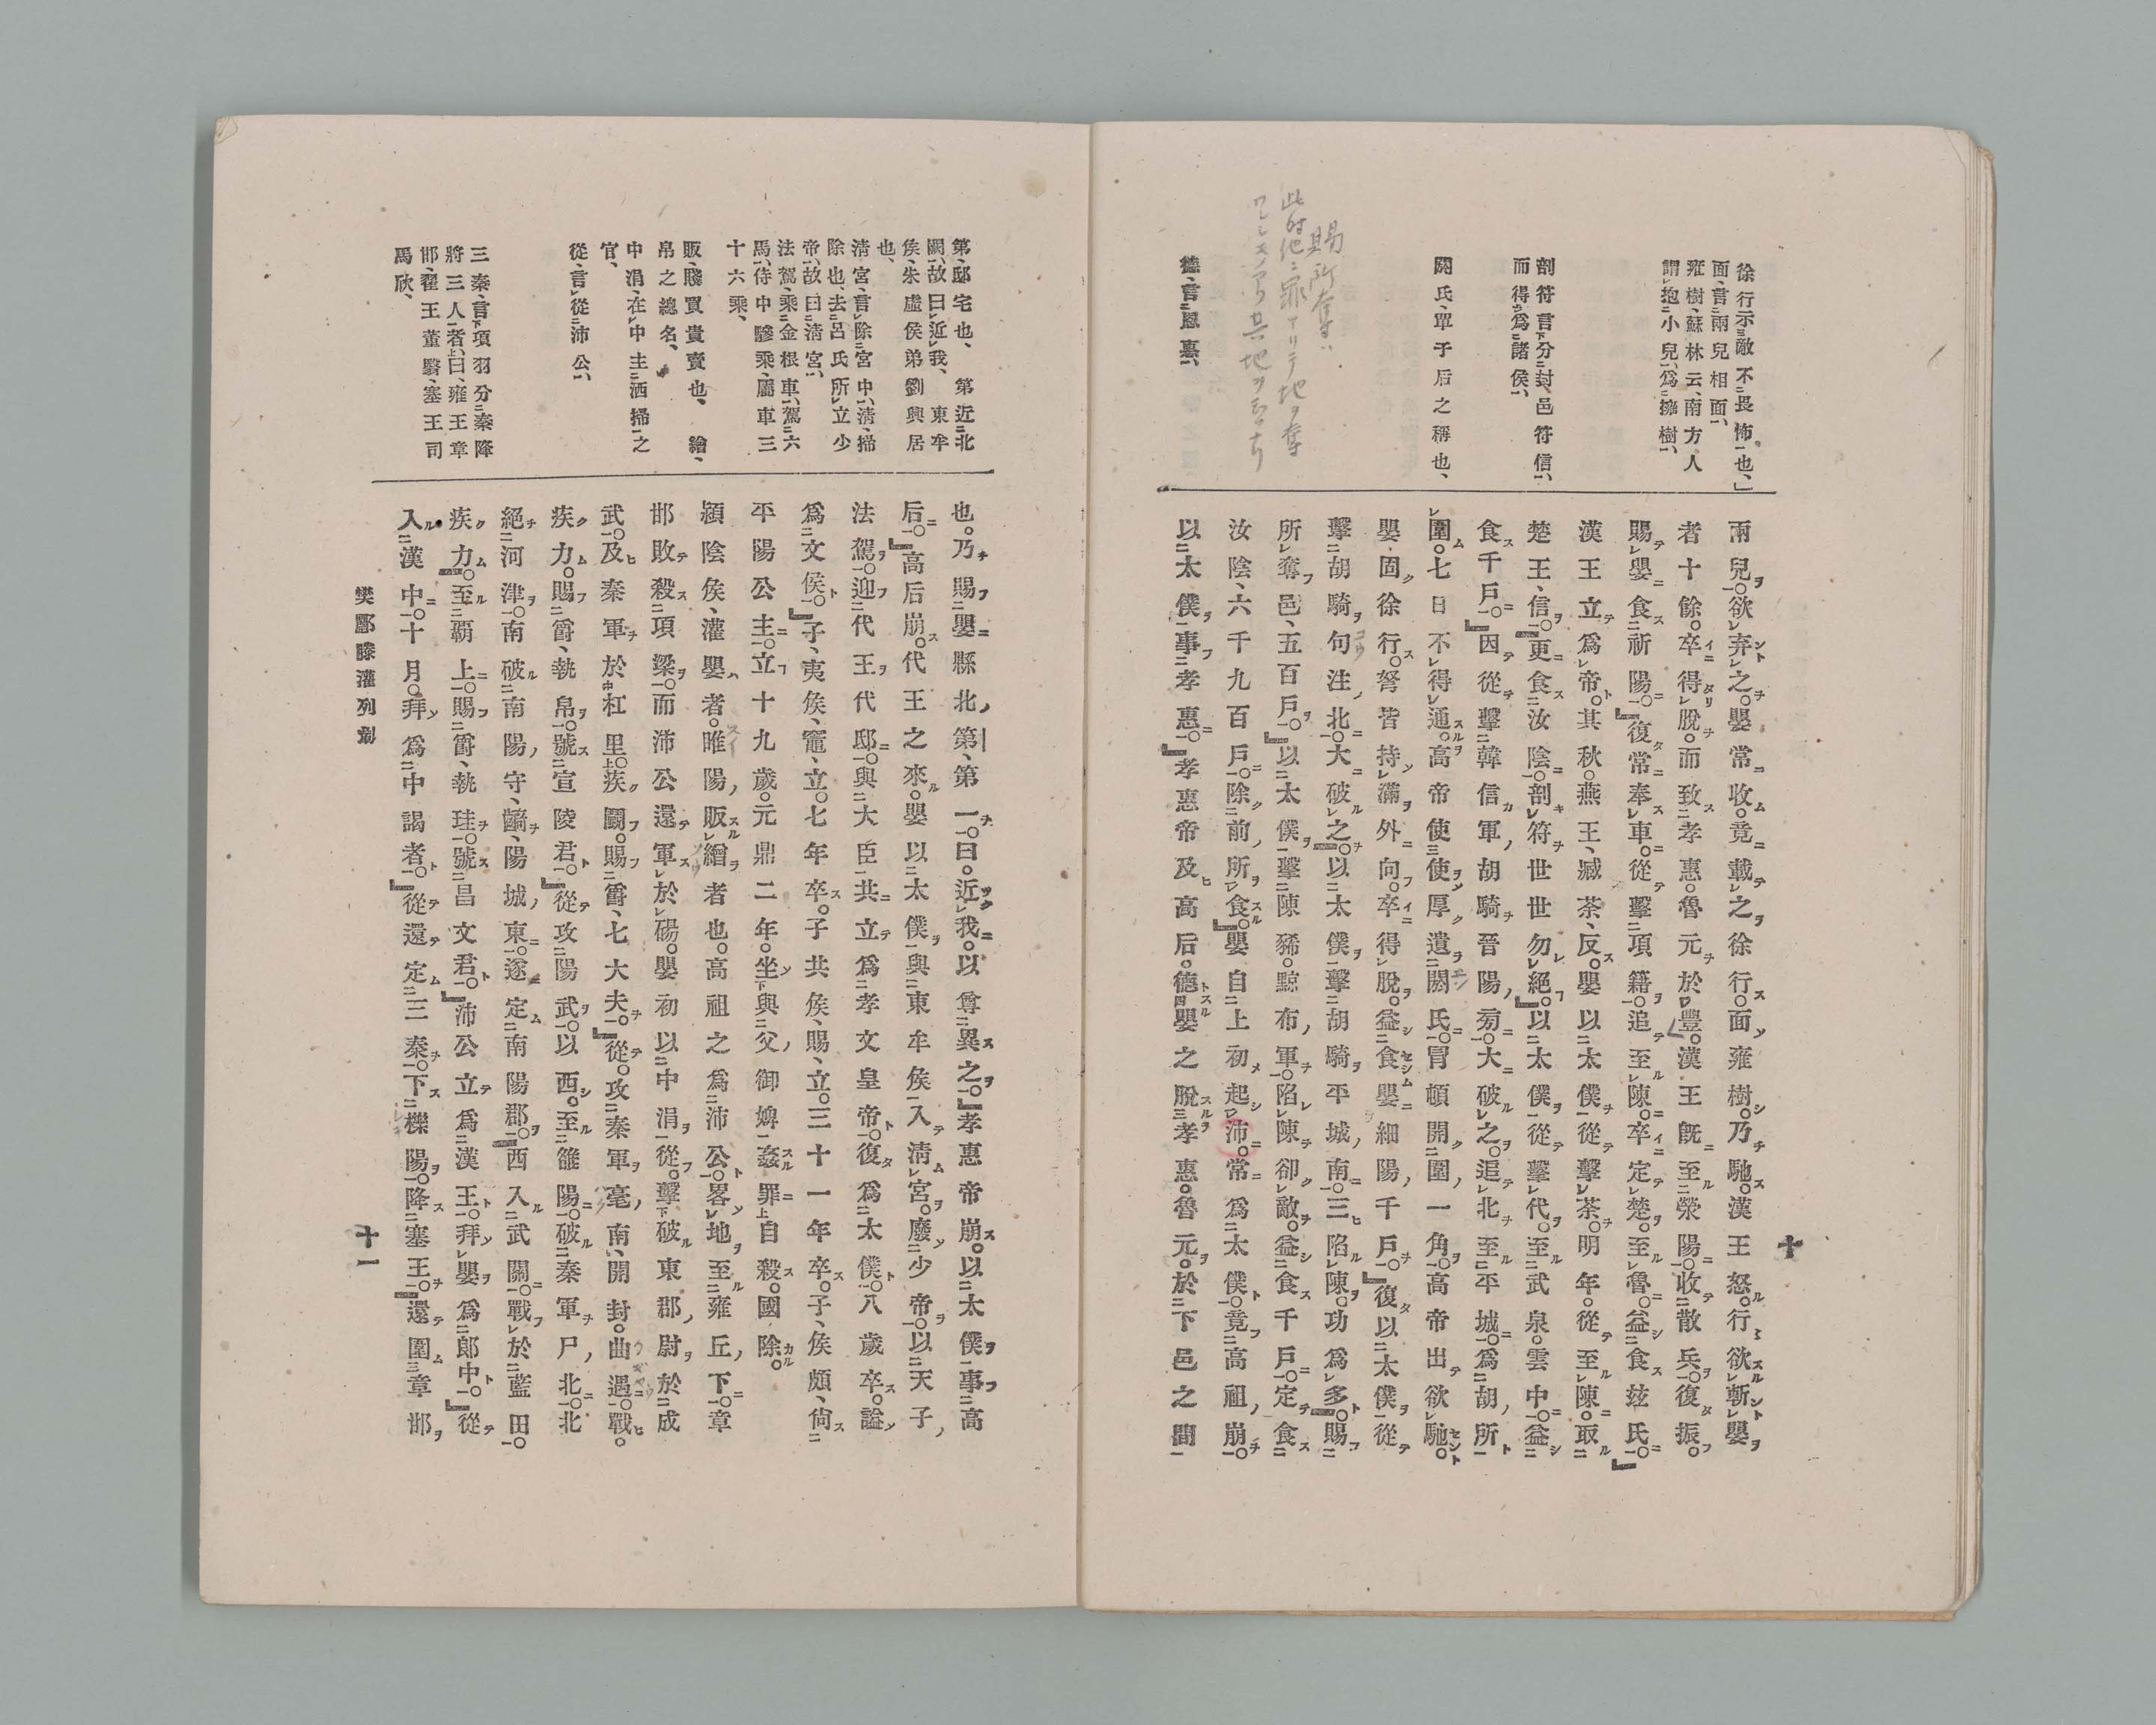 徐行示敵不畏怖也、」
面、言兩兒相面、
雍樹、蘇林云、南方人
謂抱小兒、爲擁樹、
剖符、言分封、邑符信、
而得爲諸侯、
閼氏、單于后之稱也、
賜所奪、
德、言恩惠、
兩兒。欲弃之。嬰常收。竟載之徐行。面雍樹。乃馳。漢王怒。行欲斬嬰
者十餘。卒得脫。而致孝惠。魯元於豐。漢王既至滎陽。收散兵。復振。
賜嬰食祈陽。』復常奉車。從擊項籍。追至陳。卒定楚。至魯。益食玆氏。』
漢王立爲帝。其秋。燕王、臧荼、反。嬰以太僕從擊荼。明年。從至陳。取
楚王、信。』更食汝陰。剖符世世勿絕。』以太僕從擊代。至武泉。雲中。益
食千戶。』因從擊韓信軍胡騎晉陽旁。大破之。追北至平城。爲胡所
圍。七日不得通。高帝使使厚遺閼氏。冒頓開圍一角。高帝出欲馳。
嬰固徐行。弩皆持滿外向。卒得脫。益食嬰細陽千戶。』復以太僕從
擊胡騎句注北。大破之。以太僕擊胡騎平城南。三陷陳。功爲多。賜
所奪邑、五百戶。』以太僕擊陳豨。黥布軍。陷陳卻敵。益食千戶。定食
汝陰、六千九百戶。除前所食。』嬰自上初起沛。常爲太僕。竟高祖崩。
以太僕事孝惠。』孝惠帝及高后。德嬰之脫孝惠。魯元。於下邑之間
十
第、邸宅也、第近北
闕、故曰近我、東牟
侯、朱虛侯弟劉興居
也、
淸宮、言除宮中、淸、掃
除也、去呂氏所立少
帝、故曰淸宮、
法駕、乘金根車、駕六
馬、侍中驂乘、屬車三
十六乘、
販、賤買貴賣也、繒、
帛之總名、
中涓、在中主洒掃之
官、
從、言從沛公、
三秦、言項羽分秦降
將三人者、曰、雍王章
邯、翟王董翳、塞王司
馬欣、
也。乃賜嬰縣北第、第一。曰。近我。以尊異之。』孝惠帝崩。以太僕事高
后。』高后崩。代王之來。嬰以太僕與東牟侯入淸宮。廢少帝。以天子
法駕。迎代王代邸。與大臣共立爲孝文皇帝。復爲太僕。八歲卒。謚
爲文侯。』子、夷侯、竈、立。七年卒。子共侯、賜、立。三十一年卒。子、侯頗、尙
平陽公主。立十九歲。元鼎二年。坐與父御婢姦罪自殺。國除。
潁陰侯、灌嬰者。睢陽販繒者也。高祖之爲沛公。畧地至雍丘下。章
邯敗殺項梁。而沛公還軍於碭。嬰初以中涓從。擊破東郡尉於成
武。及秦軍於杠里。疾鬪。賜爵、七大夫。』從。攻秦軍亳南、開封。曲遇。戰。
疾力。賜爵、執帛。號宣陵君。』從攻陽武。以西。至雒陽。破秦軍尸北。北
絕河津。南破南陽守、齮、陽城東。遂定南陽郡。』西入武關。戰於藍田。
疾力。至霸上。賜爵、執珪。號昌文君。』沛公立爲漢王。拜嬰爲郞中。』從
入漢中。十月。拜爲中謁者。』從還定三秦。下櫟陽。降塞王。』還圍章邯
樊酈滕灌列傳
十一